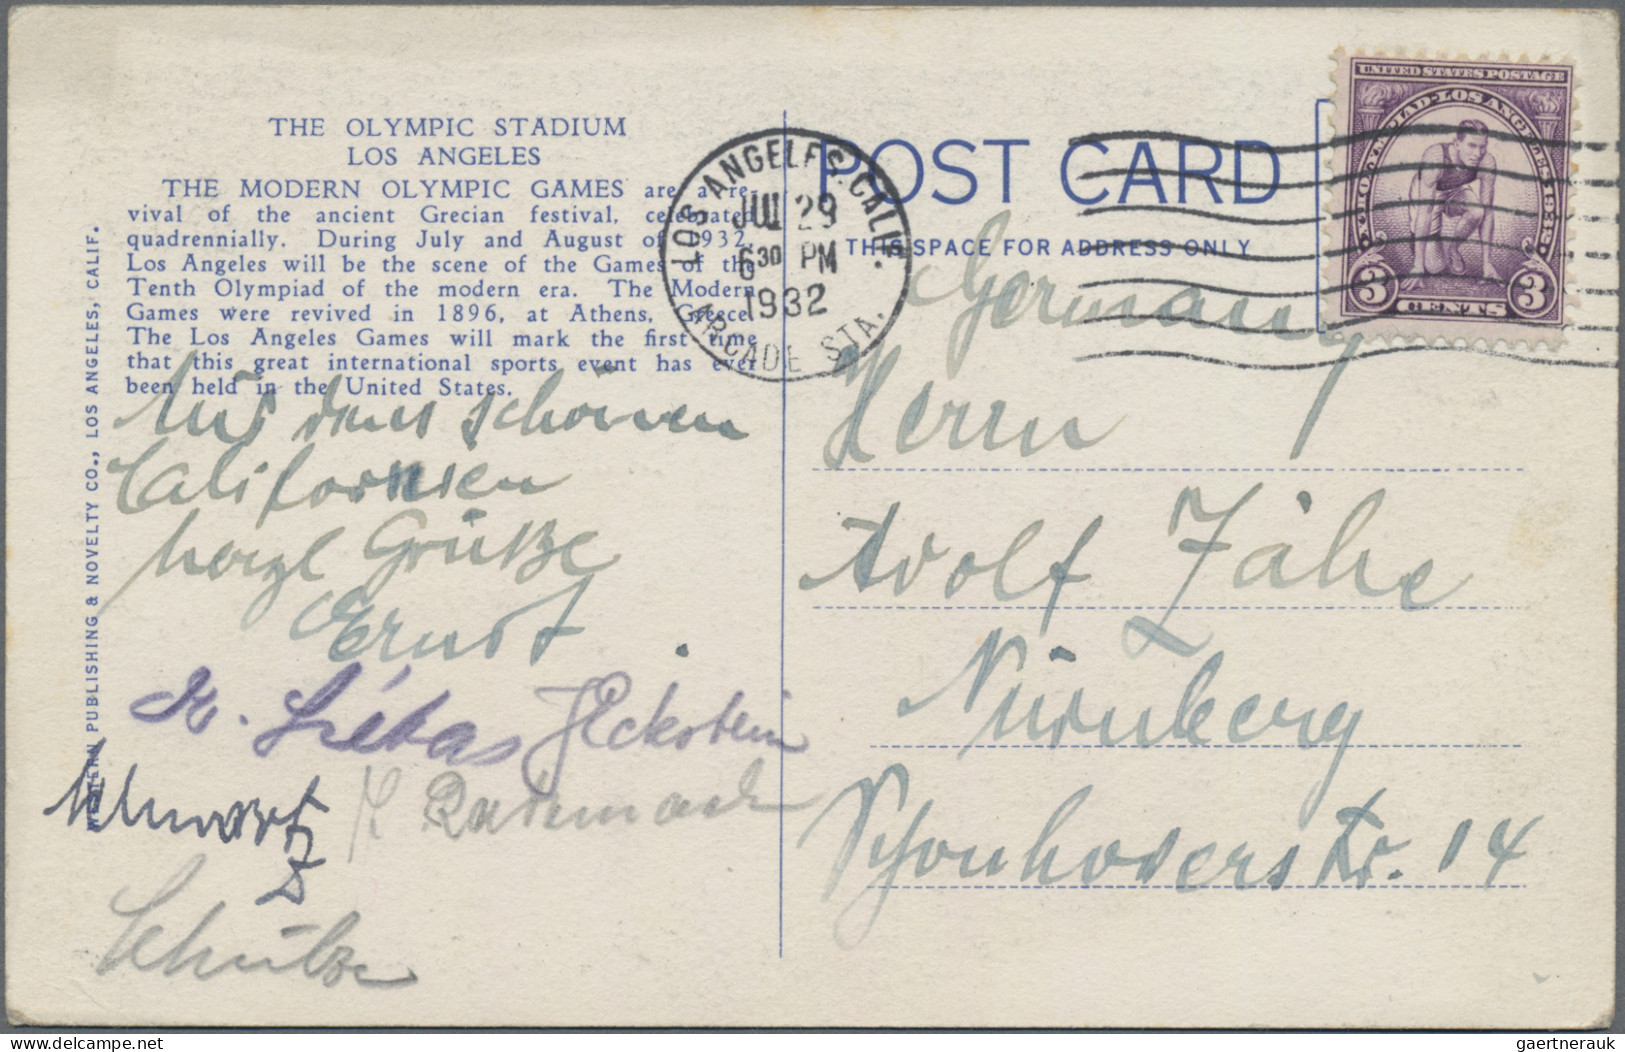 THE OLYMPIC STADIUM
LOS ANGELES
THE MODERN OLYMPIC GAMES are a re-
vival of the ancient Grecian festival, celebrated
quadrennially. During July and August of 1932,
Los Angeles will be the scene of the Games of the
Tenth Olympiad of the modern era. The Modern
Games were revived in 1896, at Athens, Greece.
The Los Angeles Games will mark the first time
that this great international sports event has ever
been held in the United States.
WESTERN PUBLISHING & NOVELTY CO., LOS ANGELES, CALIF.
Aus dem schönen
Californien
herzl Grüße
Ernst
Eckstein
K Rademach
Schwartz
Schulze
LOS ANGELES, CALIF.
JUL 29
6 30 PM
1932
ARCADE STA.
POST CARD
THIS SPACE FOR ADDRESS ONLY
UNITED STATES POSTAGE
X OLYMPIAD · LOS ANGELES 1932
3 CENTS 3
Germany
Herrn
Adolf Zähe
Nürnberg
Schonhoverstr. 14
gaertnerauk